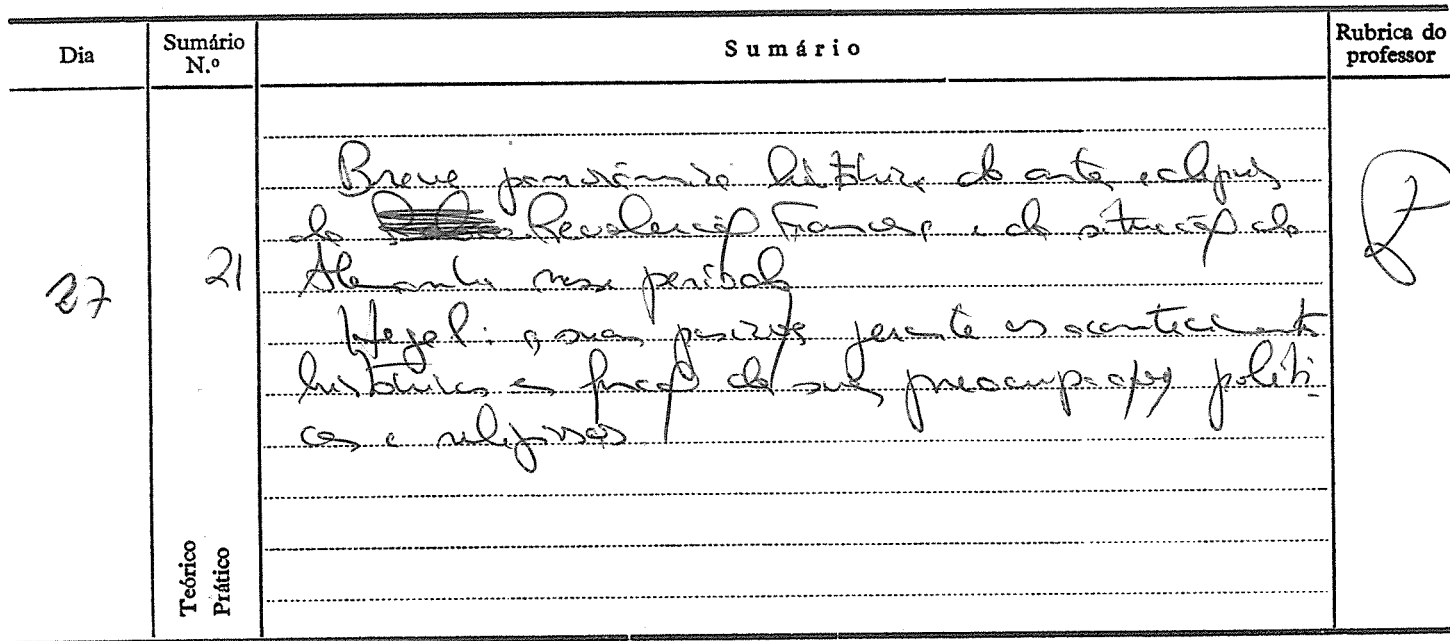 Dia
Sumário
N.º
Sumário
Rubrica do
professor
27
21
Breve panorâmica histórica do antes e depois
da Revolução Francesa e da situação da
Alemanha nesse período
Hegel: a sua posição perante os acontecimentos
históricos em função das suas preocupações políti-
cas e religiosas
Teórico
Prático